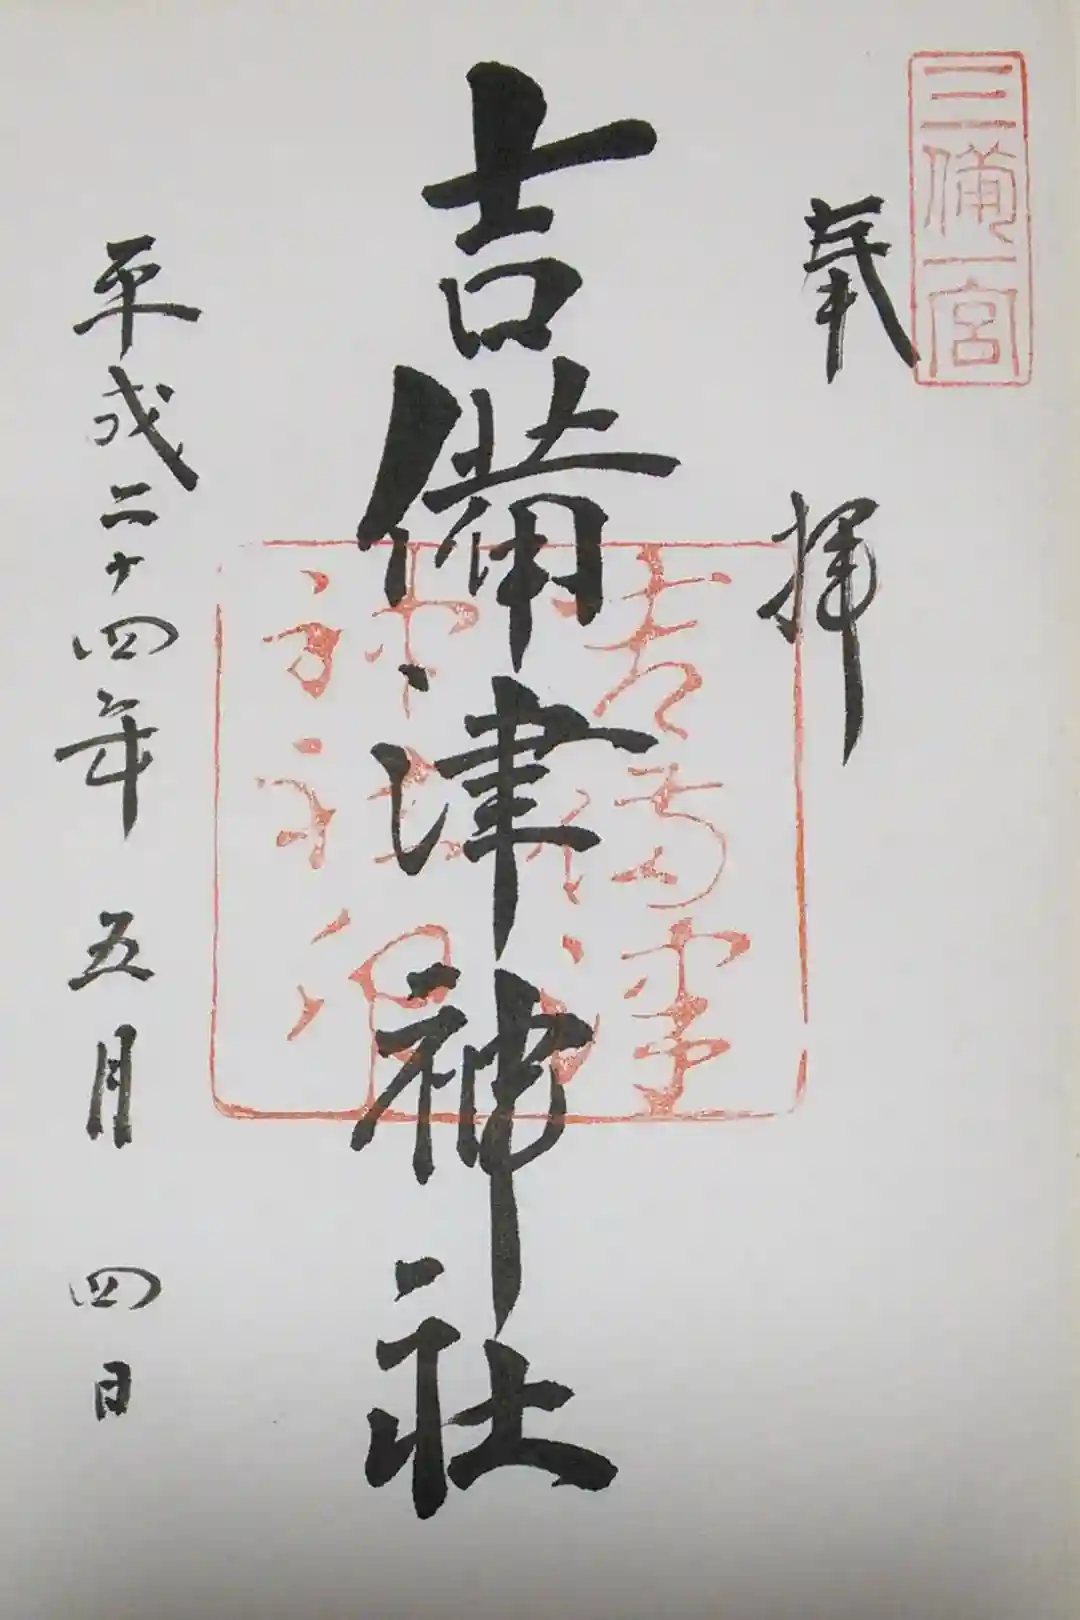 三備一宮
奉拝
吉備津神社
吉備津
神社
平成二十四年五月四日